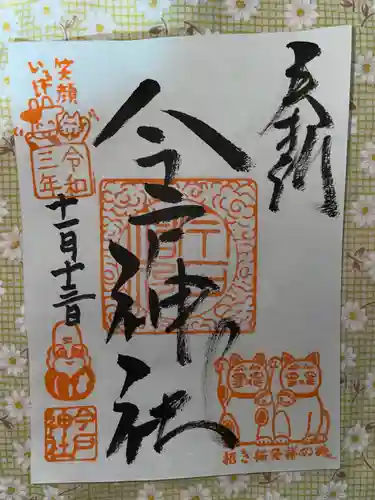 奉拝
今戸神社
笑顔
いっぱい
令和
三年
十一月十三日
今戸
神社
招き猫発祥の地